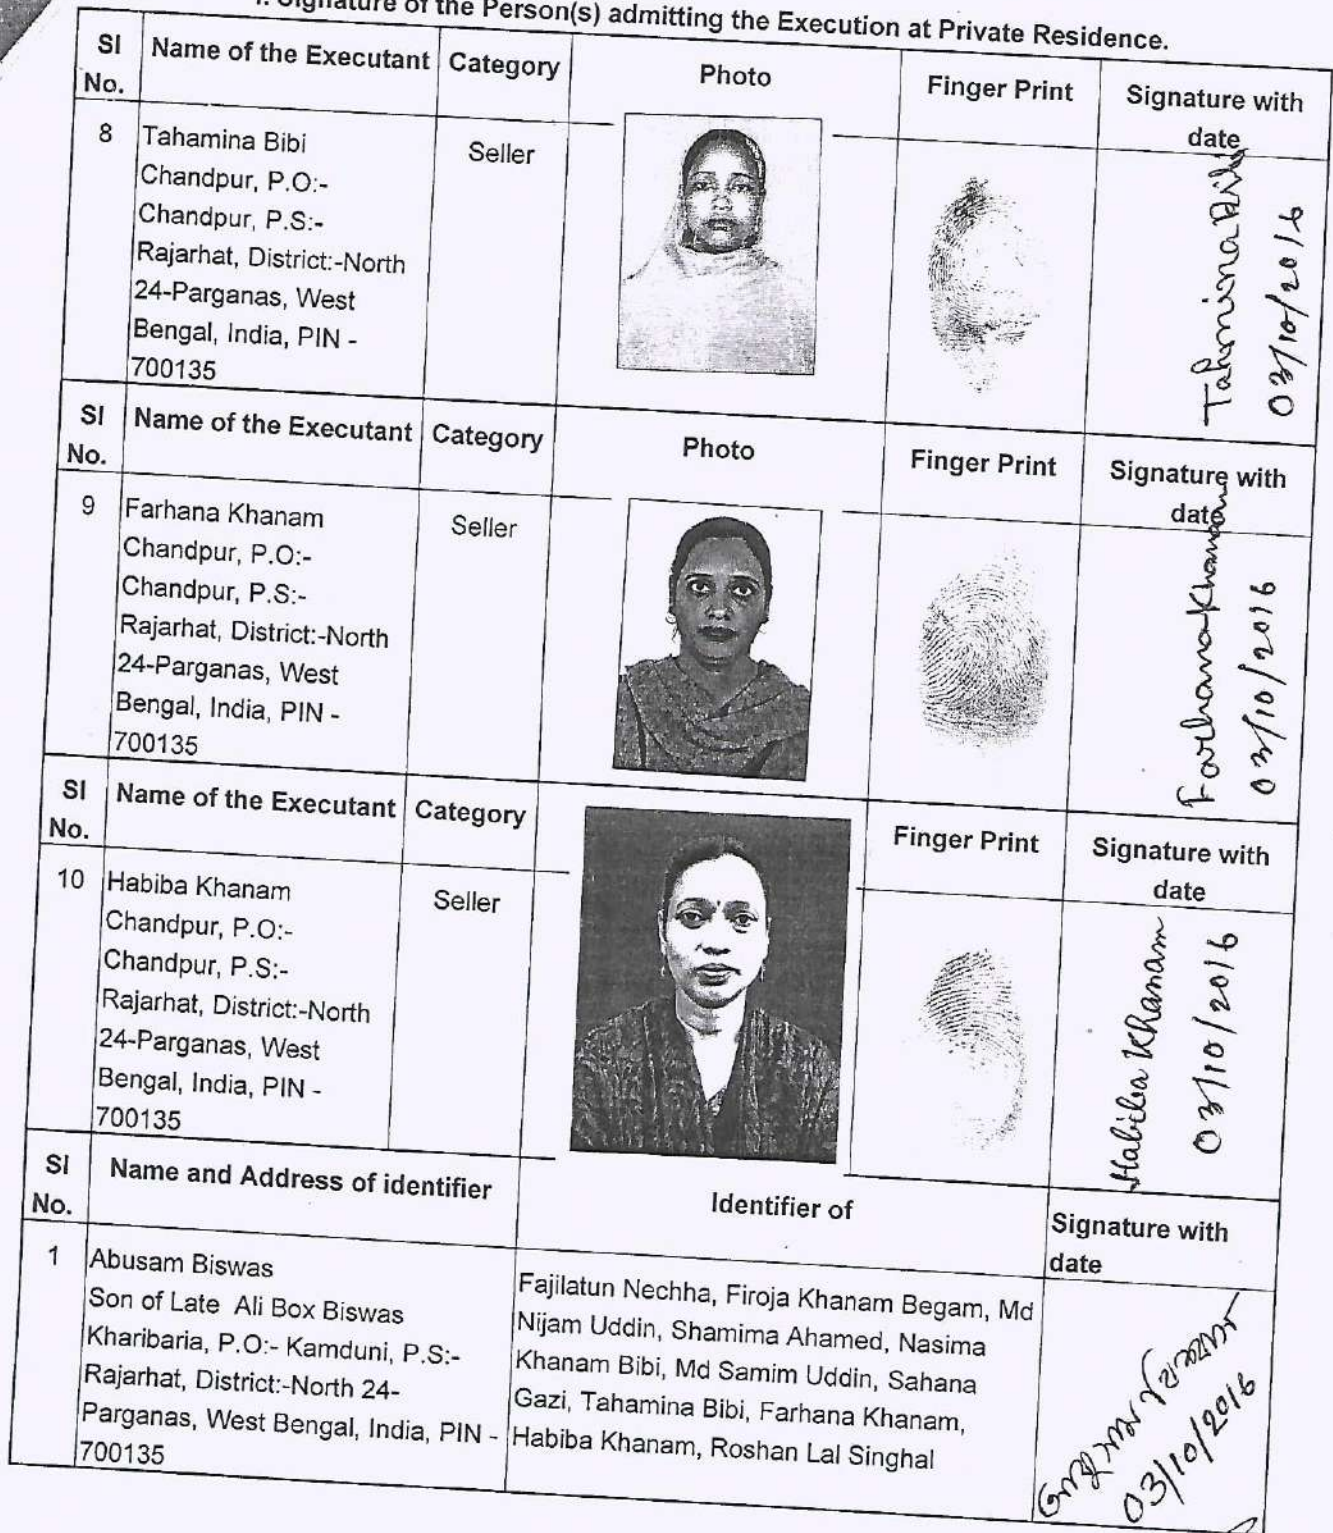 I. Signature of the Person(s) admitting the Execution at Private Residence.
Sl No. Name of the Executant Category Photo Finger Print Signature with date
8 Tahamina Bibi Seller
Chandpur, P.O:-
Chandpur, P.S:-
Rajarhat, District:-North
24-Parganas, West
Bengal, India, PIN -
700135
Tahmina Bibi
03/10/2016
Sl No. Name of the Executant Category Photo Finger Print Signature with date
9 Farhana Khanam Seller
Chandpur, P.O:-
Chandpur, P.S:-
Rajarhat, District:-North
24-Parganas, West
Bengal, India, PIN -
700135
Farhana Khanam
03/10/2016
Sl No. Name of the Executant Category Finger Print Signature with date
10 Habiba Khanam Seller
Chandpur, P.O:-
Chandpur, P.S:-
Rajarhat, District:-North
24-Parganas, West
Bengal, India, PIN -
700135
Habiba Khanam
03/10/2016
Sl No. Name and Address of identifier Identifier of Signature with date
1 Abusam Biswas
Son of Late Ali Box Biswas
Kharibaria, P.O:- Kamduni, P.S:-
Rajarhat, District:-North 24-
Parganas, West Bengal, India, PIN -
700135
Fajilatun Nechha, Firoja Khanam Begam, Md
Nijam Uddin, Shamima Ahamed, Nasima
Khanam Bibi, Md Samim Uddin, Sahana
Gazi, Tahamina Bibi, Farhana Khanam,
Habiba Khanam, Roshan Lal Singhal
03/10/2016